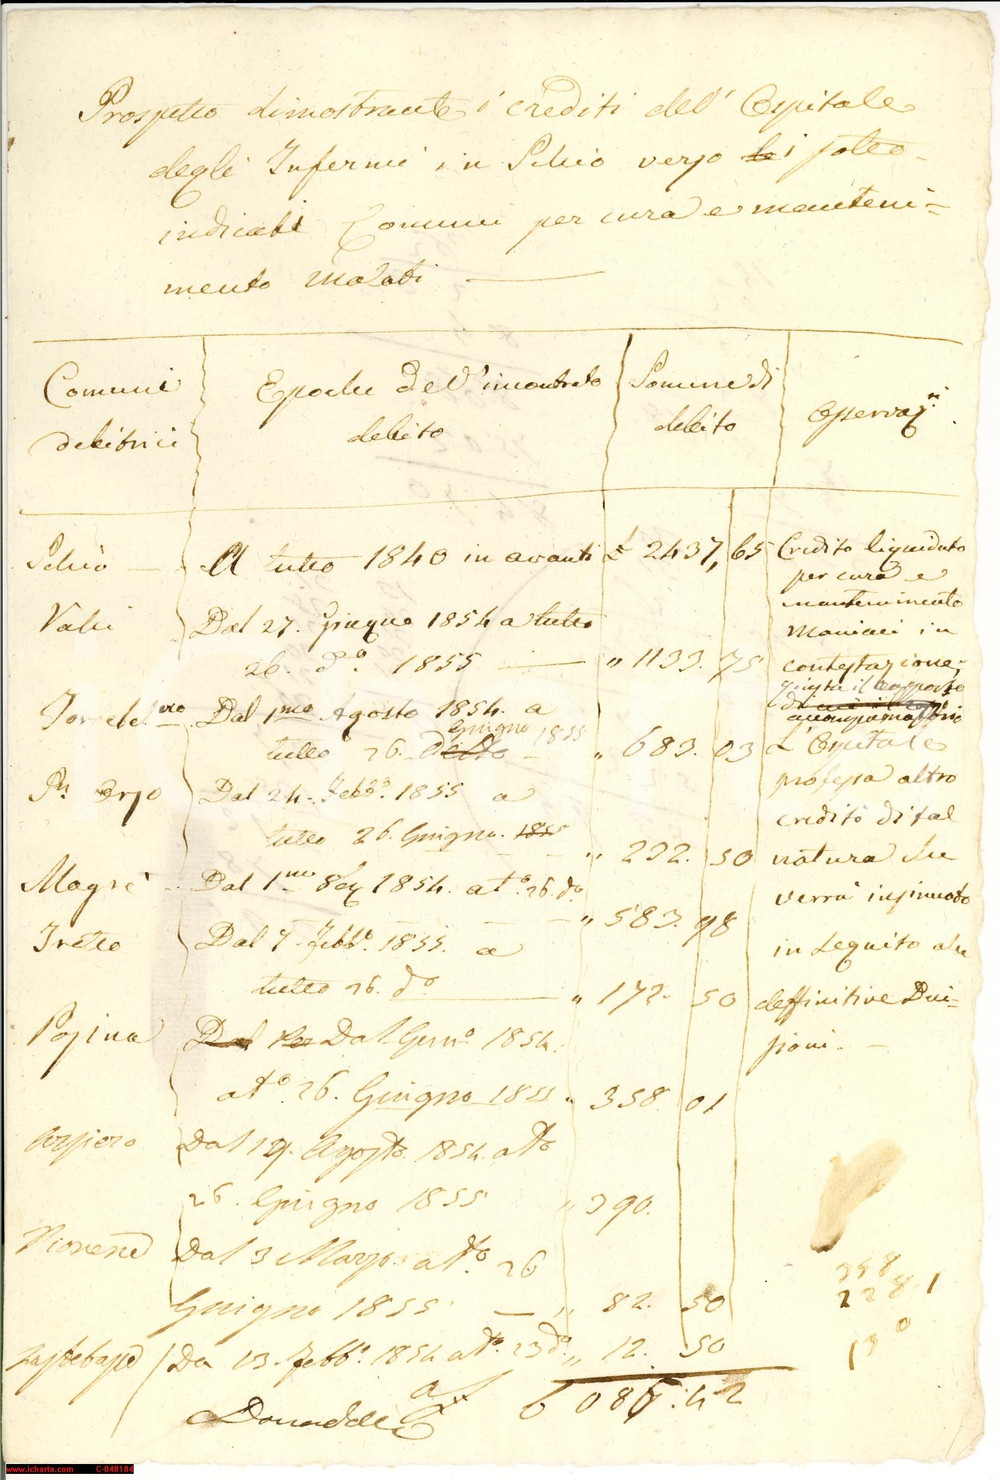 Prospetto dimostrante i crediti dell' Ospitale
degli Infermi in Schio verso i sotto-
indicati Comuni per cura e manteni=
mento malati
Comuni
debitrici
Epoche dell'incontrato
debito
Somme di
debito
Osservaz.ni
Schio A tutto 1840 in avanti £ 2437,65
Valli Dal 27. Giugno 1854 a tutto
26. do. 1855 " 1133.75
Dal 1mo Agosto 1854. a
tutto 26. Giugno 1855 " 683.03
Dal 24. Febbo. 1855 a
tutto 26. Giugno. 1855 " 232.50
Magrè Dal 1mo 1854. a to. 26. do. " 583.98
Tretto Dal 7. Febbo. 1855. a
tutto 26. do. " 172.50
Posina Dal Genno. 1854.
a to. 26. Giugno 1855 " 358.01
Arsiero Dal 19. Agosto. 1854. a tto
26. Giugno 1855 " 390.
Dal 3 Marzo. a tto. 26
Giugno 1855 " 82.50
Da 13. Febbo. 1854 a to. 23 do. " 12.50
6086.42
Credito liquidato
per cura e
mantenimento
Maniaci in
contestazione,
giusta il rapporto
L'Ospitale
professa altro
credito di tal
natura che
verrà insinuato
in seguito alle
deffinitive Deci-
sioni.
358
228.1
130
www.icharta.com C-048184